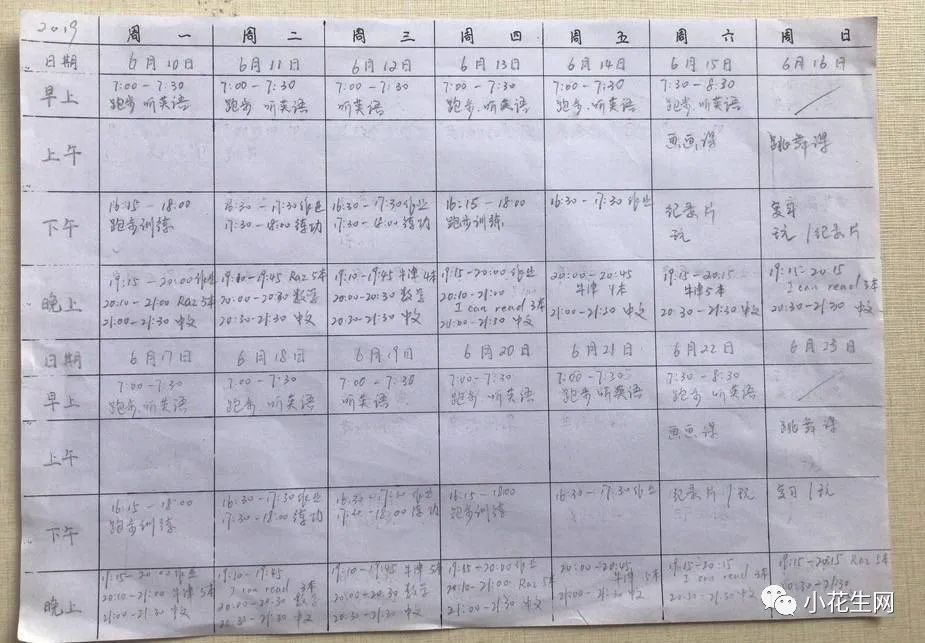 2019 周一 周二 周三 周四 周五 周六 周日
日期 6月10日 6月11日 6月12日 6月13日 6月14日 6月15日 6月16日
早上 7:00-7:30 7:00-7:30 7:00-7:30 7:00-7:30 7:00-7:30 7:30-8:30
跑步、听英语 跑步、听英语 听英语 跑步、听英语 跑步、听英语 跑步、听英语
上午 画画课 跳舞课
下午 16:15-18:00 16:30-17:30作业 16:30-17:30作业 16:15-18:00 16:30-17:30作业 纪录片 复习
跑步训练 17:30-18:00练功 17:30-18:00练功 跑步训练 玩 玩/纪录片
晚上 19:15-20:00作业 19:10-19:45 Raz 5本 19:10-19:45 牛津 4本 19:15-20:00作业 20:00-20:45 19:15-20:15 19:15-20:15
20:10-21:00 Raz 5本 20:00-20:30数学 20:00-20:30数学 20:10-21:00 牛津 牛津5本 I can read 3本
21:00-21:30 中文 20:30-21:30 中文 20:30-21:30 中文 I can read 3本 21:00-21:30 中文 20:30-21:30 中文 20:30-21:30 中文
中文
日期 6月17日 6月18日 6月19日 6月20日 6月21日 6月22日 6月23日
早上 7:00-7:30 7:00-7:30 7:00-7:30 7:00-7:30 7:00-7:30 7:30-8:30
跑步、听英语 跑步、听英语 听英语 跑步、听英语 跑步、听英语 跑步、听英语
上午 画画课 跳舞课
下午 16:15-18:00 16:30-17:30作业 16:30-17:30作业 16:15-18:00 16:30-17:30作业 纪录片/玩 复习/玩
跑步训练 17:30-18:00练功 17:30-18:00练功 跑步训练
晚上 19:15-20:00作业 19:10-19:45 19:10-19:45 牛津 5本 19:15-20:00作业 20:00-20:45 19:15-20:15 19:15-20:15 Raz 5本
20:10-21:00 牛津 5本 I can read 3本 20:00-20:30 数学 20:10-21:00 Raz 5本 牛津 5本 I can read 3本 20:30-21:30
21:00-21:30 中文 20:00-20:30 数学 20:30-21:30 中文 21:00-21:30 中文 21:00-21:30 中文 20:30-21:30 中文
20:30-21:30 中文
小花生网